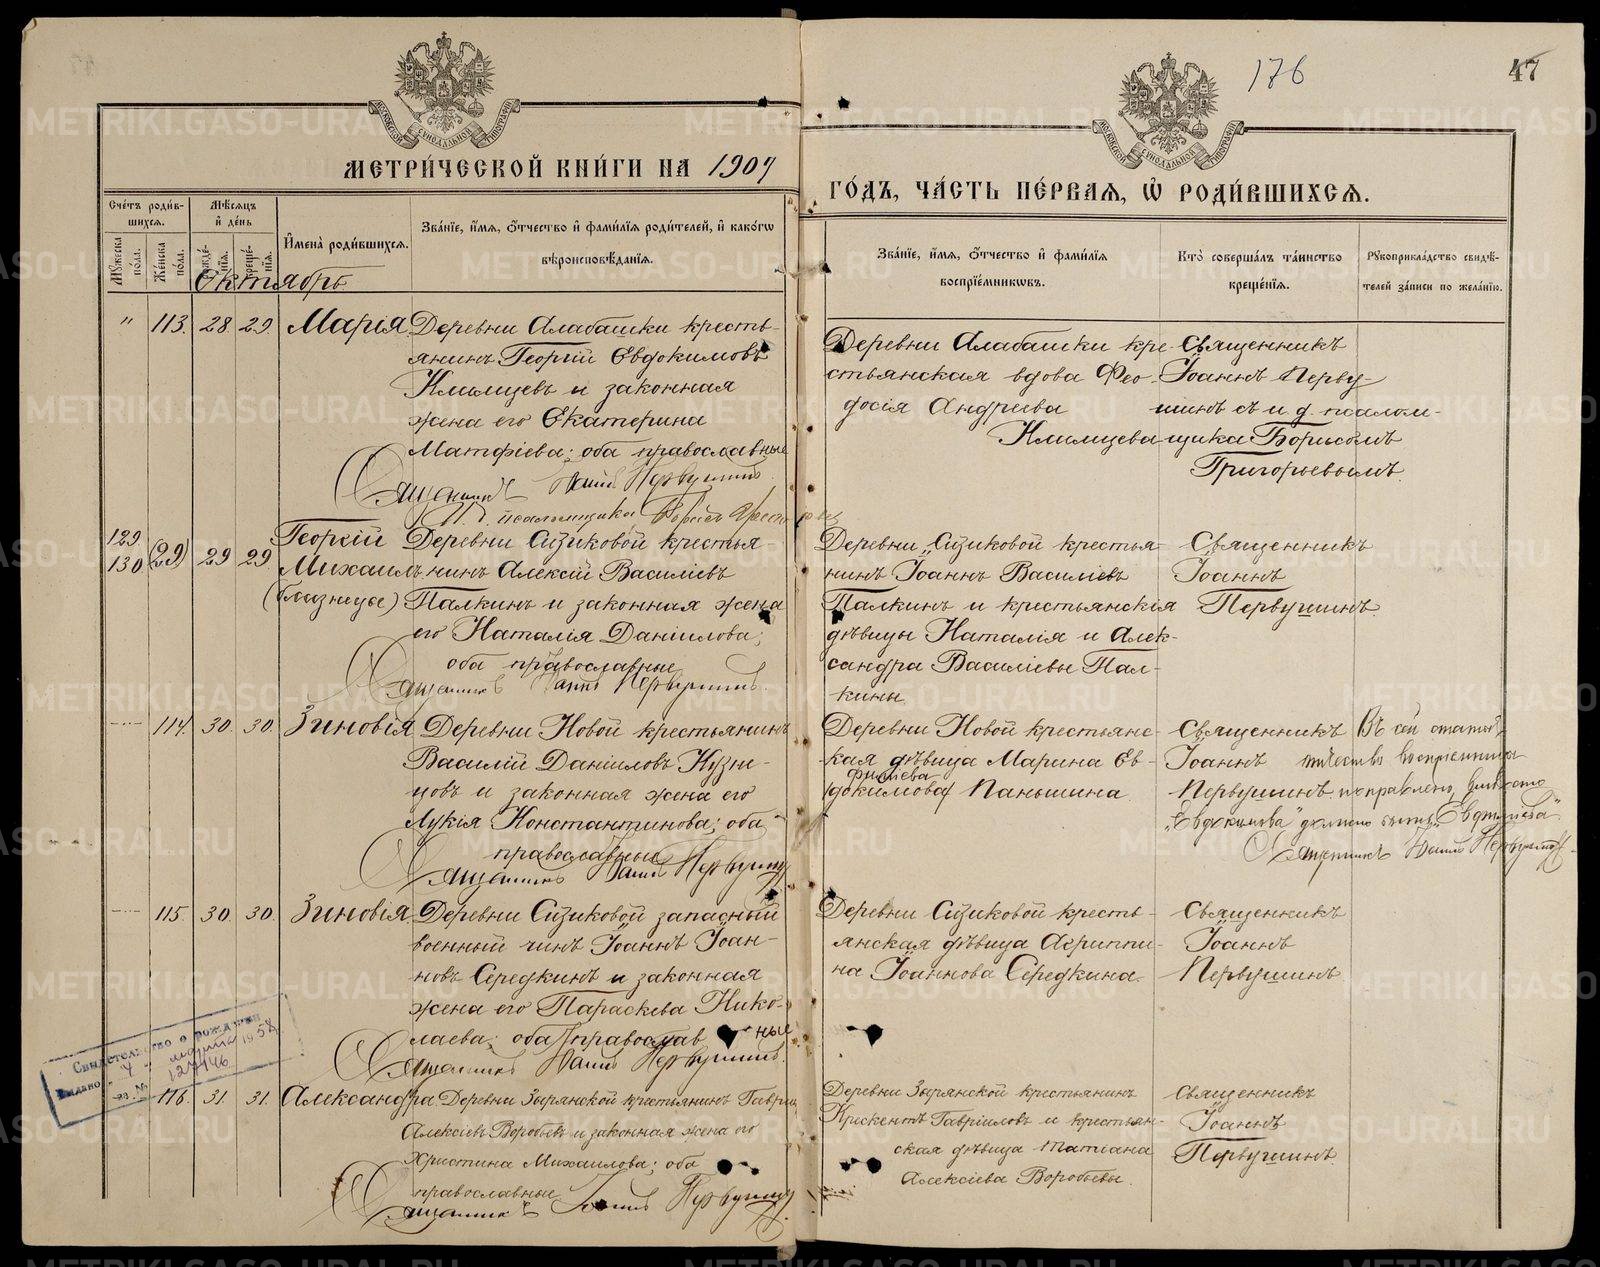 176
47
МЕТРИ́ЧЕСКОЙ КНИ́ГИ НА 1907
ГО́ДЪ, ЧА́СТЬ ПЕ́РВАЯ, Ѡ҆ РОДИ́ВШИХСЯ.
Счéтъ роди́в-
шихся.
Мужеска пола.
Женска пола.
Мѣсяцъ
и҆ де́нь
рожде́-
нія.
креще́-
нія.
И҆мена̀ роди́вшихся.
Зва́ніе, и҆́мя, ѻ҆́тчество и҆ фами́лія роди́телей, и҆ како́гѡ
вѣроисповѣ́данія.
Зва́ніе, и҆́мя, ѻ҆́тчество и҆ фами́лія
воспріе́мниковъ.
Кто̀ соверша́лъ та́инство
креще́нія.
Рꙋкоприкла́дство свидѣ́-
телей за́писи по жела́нію.
Октябрь
" 113. 28. 29. Марія
Деревни Алабашки кресть-
янинъ Георгій Евдокимовъ
Климцевъ и законная
жена его Екатерина
Матфіева; оба православные
Священникъ Іоаннъ Первушинъ
И. д. псаломщика Борисъ
Деревни Алабашки кре-
стьянская вдова Фео-
досія Андреева
Климцева
Священникъ
Іоаннъ Перву-
шинъ съ и. д. псалом-
щика Борисомъ
Григорьевымъ.
129
130 (29) 29 29 Георгій
Михаилъ
(близнецы)
Деревни Сизиковой крестья-
нинъ Алексій Василіевъ
Палкинъ и законная жена
его Наталія Даніилова;
оба православные
Священникъ Іоаннъ Первушинъ.
Деревни Сизиковой крестья-
нинъ Іоаннъ Василіевъ
Палкинъ и крестьянскія
дѣвицы Наталія и Алек-
сандра Василіевы Пал-
кины
Священникъ
Іоаннъ
Первушинъ
114. 30. 30. Зиновія
Деревни Новой крестьянинъ
Василій Даніиловъ Кузне-
цовъ и законная жена его
Лукія Константинова; оба
православные
Священникъ Іоаннъ Первушинъ
Деревни Новой крестьянс-
кая дѣвица Марина Ев-
фиміева
(докимова) Паньшина
Священникъ
Іоаннъ
Первушинъ
Въ сей статьѣ
отчество воспріемницы
поправлено, вмѣсто
„Евдокимова" должно быть
Священникъ Іоаннъ Первушинъ
115. 30. 30. Зиновія
Деревни Сизиковой запасный
военный чинъ Іоаннъ Іоан-
новъ Середкинъ и законная
жена его Параскева Нико-
лаева; оба православные
Священникъ Іоаннъ Первушинъ.
Деревни Сизиковой кресть-
янская дѣвица Агриппи-
на Іоаннова Середкина.
Священникъ
Іоаннъ
Первушинъ
Свидетельство о рождении
Выдано " 4 " марта 1958
за № 127446
116. 31. 31. Александра
Деревни Зырянской крестьянинъ
Алексіевъ Воробьевъ и законная жена его
Христина Михаилова; оба
православные
Священникъ Іоаннъ Первушинъ
Деревни Зырянской крестьянинъ
Крискентъ Гавріиловъ и крестьян-
ская дѣвица Татіана
Алексіева Воробьевы.
Священникъ
Іоаннъ
Первушинъ.
METRIKI.GASO-URAL.RU